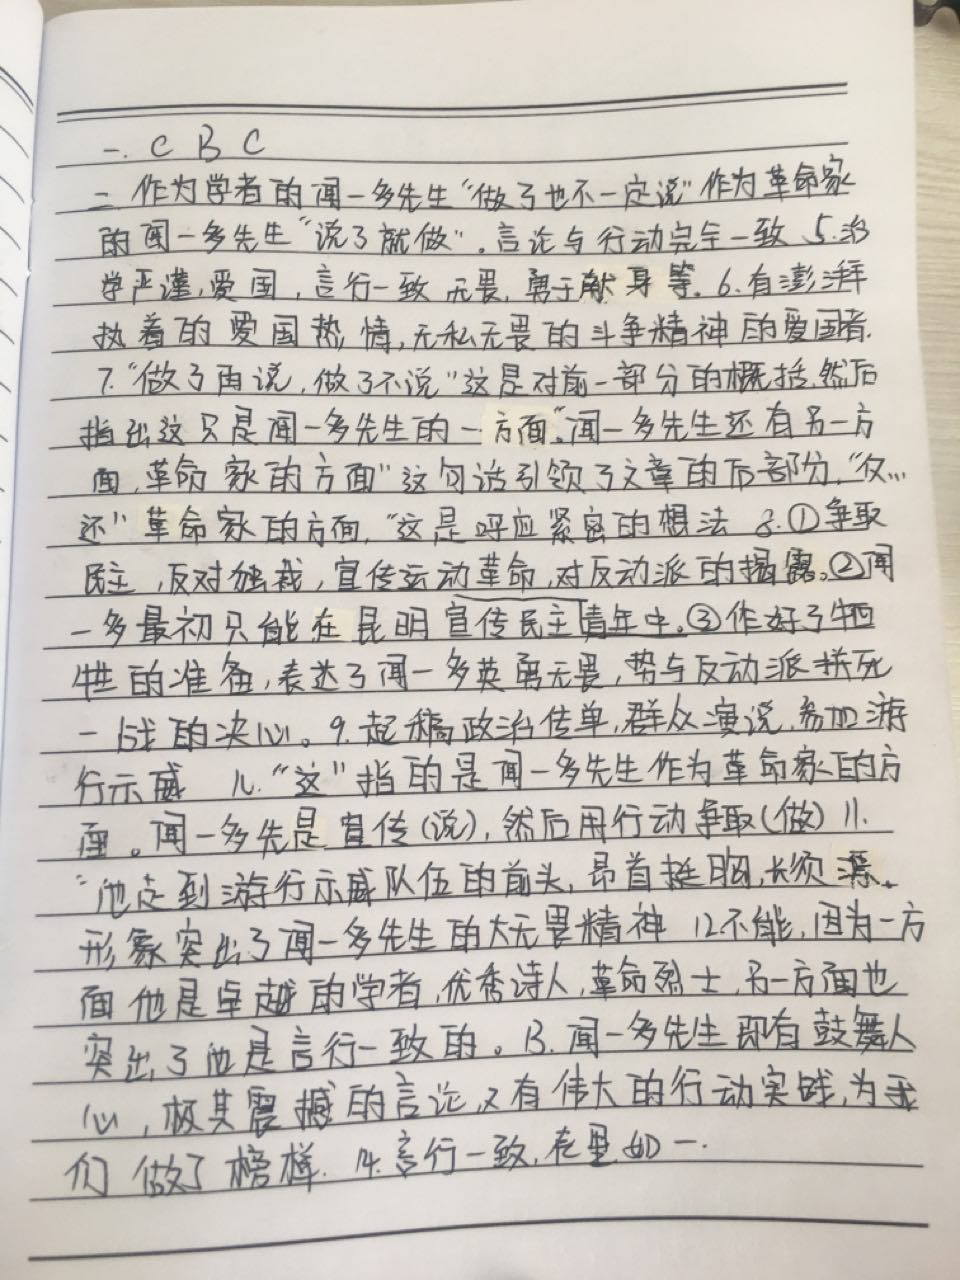 一. C B C
二 作为学者的闻一多先生"做了也不一定说"作为革命家
的闻一多先生"说了就做". 言论与行动完全一致 5.治
学严谨,爱国,言行一致 无畏,勇于献身等. 6.有澎湃
执着的爱国热情,无私无畏的斗争精神的爱国者.
7."做了再说,做了不说"这是对前一部分的概括,然后
指出这只是闻一多先生的一方面"闻一多先生还有另一方
面,革命家的方面"这句话引领了文章的后部分,"仅...
还"革命家的方面,"这是呼应紧密的想法 8.①争取
民主,反对独裁,宣传运动革命,对反动派的揭露。②闻
一多最初只能在昆明宣传民主青年中.③作好了牺
牲的准备,表达了闻一多英勇无畏,势与反动派拼死
一战的决心。9.起稿政治传单,群众演说,参加游
行示威 10."这"指的是闻一多先生作为革命家的方
面。闻一多先是宣传(说),然后用行动争取(做) 11.
"他走到游行示威队伍的前头,昂首挺胸,长须飘.
形象突出了闻一多先生的大无畏精神 12.不能,因为一方
面他是卓越的学者,优秀诗人,革命烈士,另一方面也
突出了他是言行一致的。13.闻一多先生即有鼓舞人
心,极其震撼的言论,又有伟大的行动实践,为我
们做了榜样. 14.言行一致,表里如一.